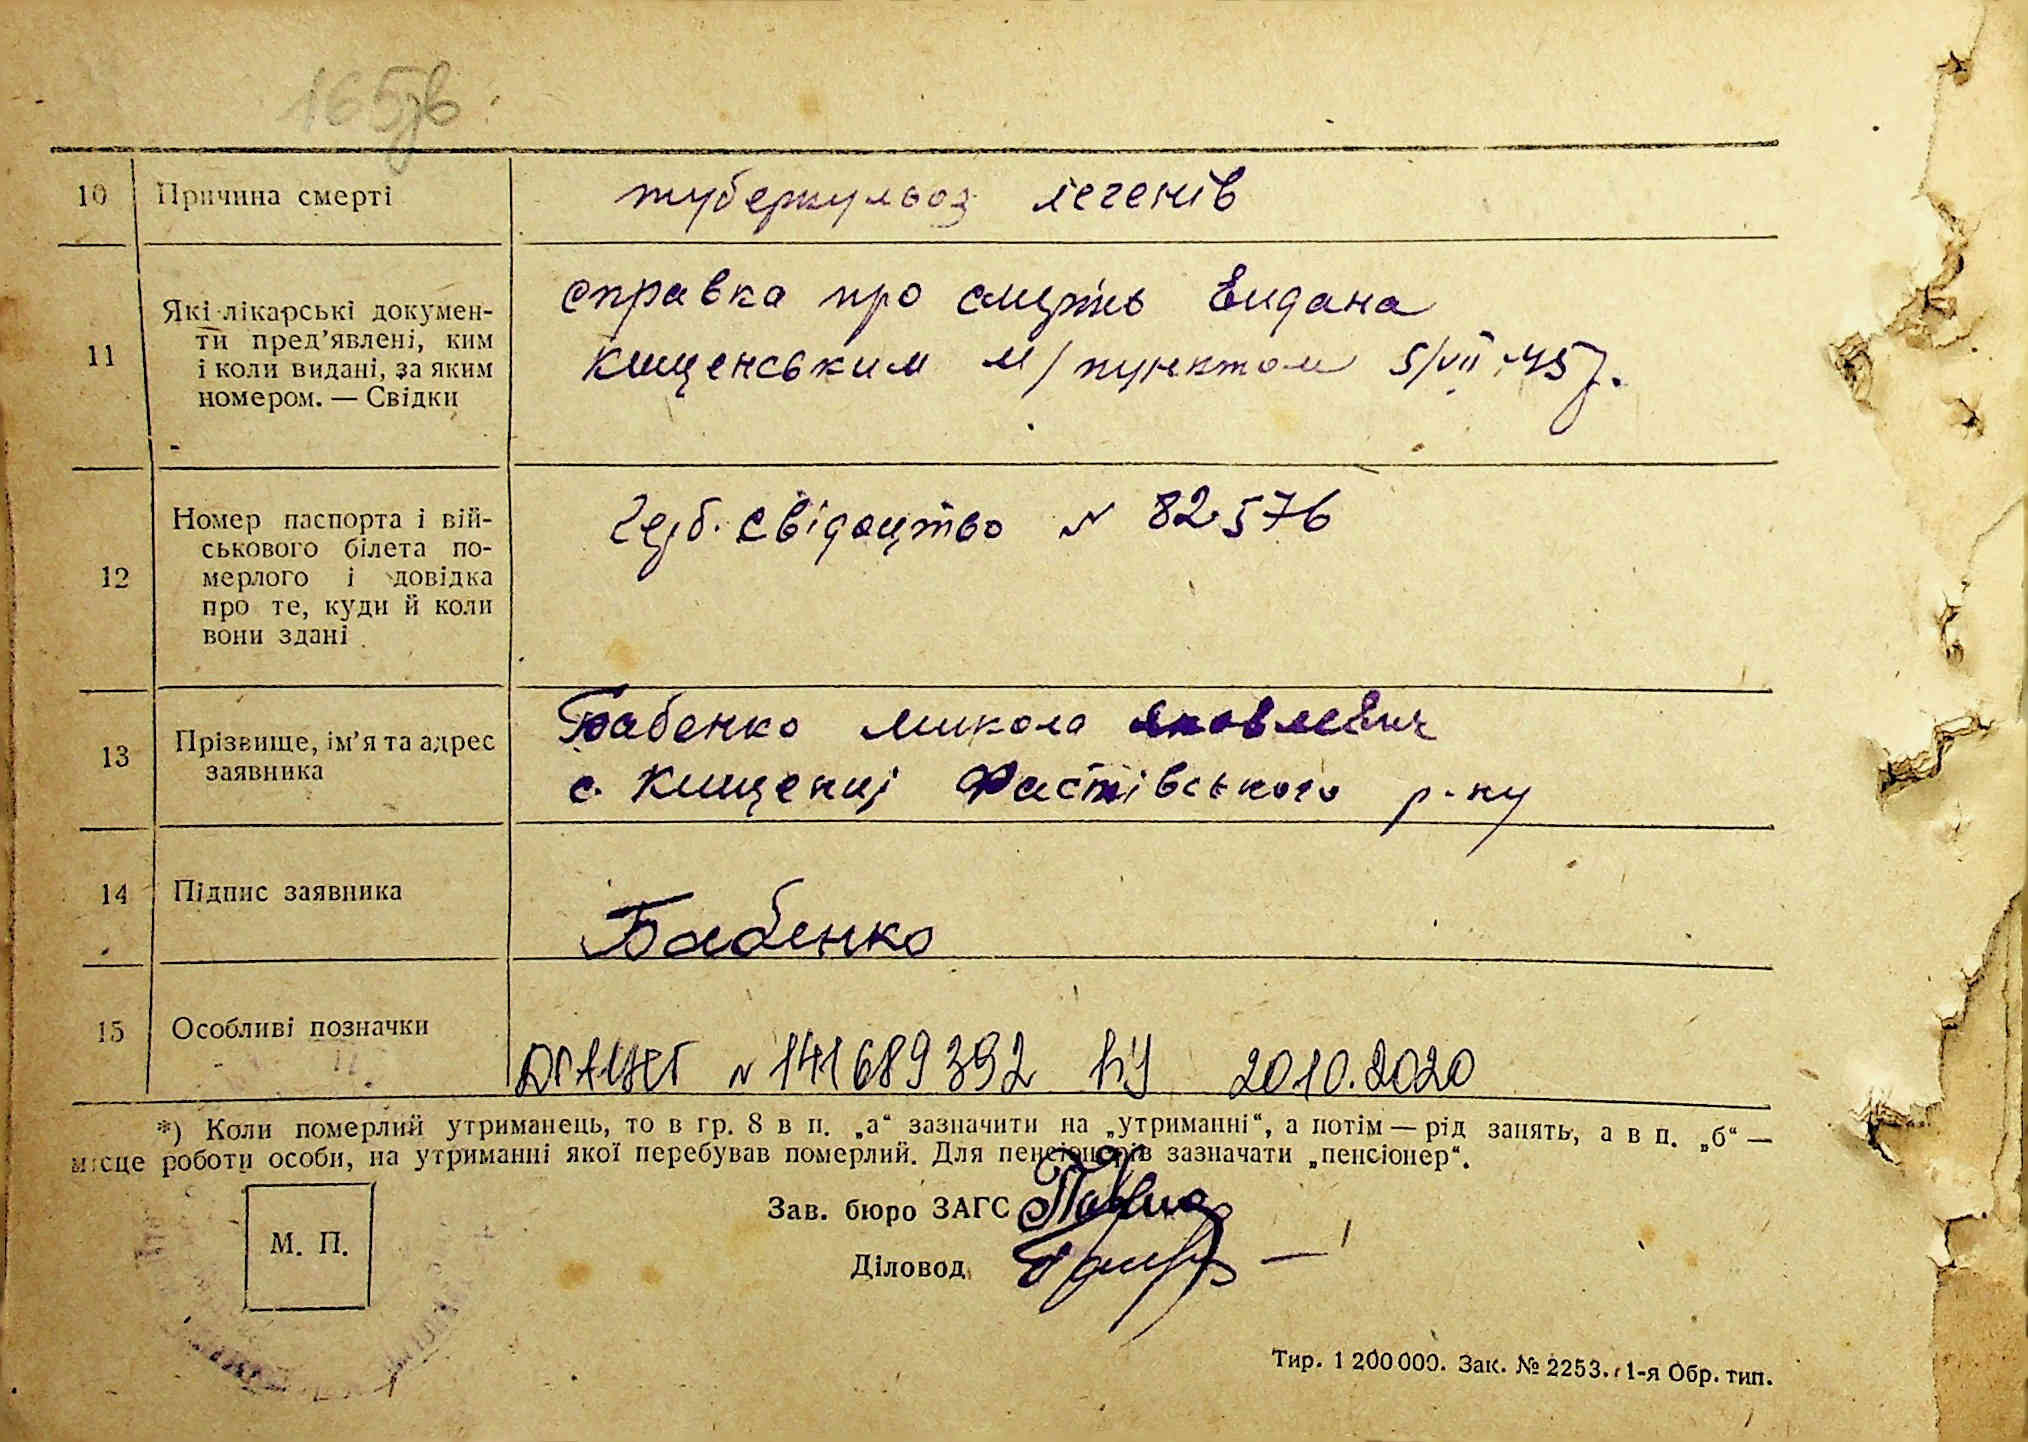 165зв
10 Причина смерті туберкульоз легенів
11 Які лікарські докумен-
ти пред’явлені, ким
і коли видані, за яким
номером. — Свідки
справка про смерть видана
Кищенським м/пунктом 5/VII-45р.
12 Номер паспорта і вій-
ськового білета по-
мерлого і довідка
про те, куди й коли
вони здані
Герб. свідоцтво N 82576
13 Прізвище, ім’я та адрес
заявника
Бабенко Микола Яковлевич
с. Кищенці Фастівського р-ну
14 Підпис заявника Бабенко
15 Особливі позначки
ДРАЦСГ N 141689392 20.10.2020
*) Коли померлий утриманець, то в гр. 8 в п. „а“ зазначити на „утриманні“, а потім — рід занять, а в п. „б“ —
місце роботи особи, на утриманні якої перебував померлий. Для пенсіонерів зазначати „пенсіонер“.
М. П.
Зав. бюро ЗАГС
Діловод
Тир. 1 200 000. Зак. № 2253. 1-я Обр. тип.